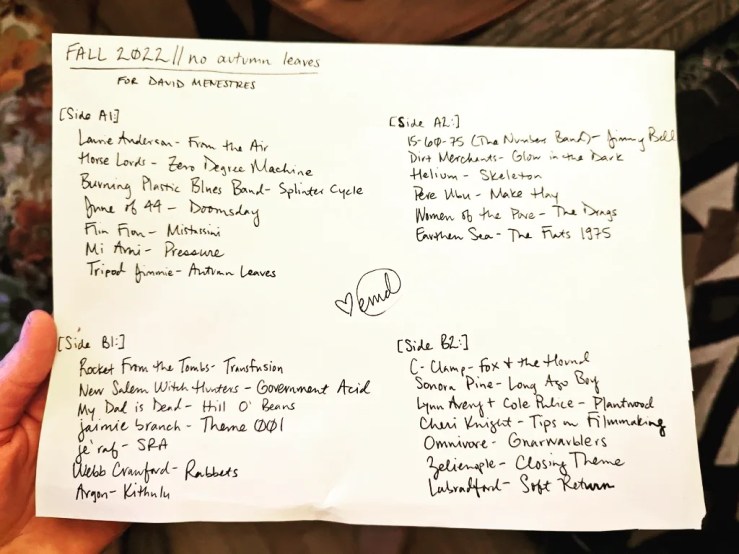 FALL 2022 // no autumn leaves
FOR DAVID MENESTRES
[Side A1]
Laurie Anderson - From the Air
Horse Lords - Zero Degree Machine
Burning Plastic Blues Band - Splinter Cycle
June of 44 - Doomsday
Flin Flon - Mistassini
Mi Ami - Pressure
Tripod Jimmie - Autumn Leaves
[Side A2:]
15-60-75 (The Number Band) - Jimmy Bell
Dirt Merchants - Glow in the Dark
Helium - Skeleton
Pere Ubu - Make Hay
Women of the Pore - The Drags
Earthen Sea - The Flats 1975
♡ emd
[Side B1:]
Rocket From the Tombs - Transfusion
New Salem Witch Hunters - Government Acid
My Dad is Dead - Hill O' Beans
jaimie branch - Theme 001
je'raf - SRA
Webb Crawford - Rabbets
Argon - Kithulu
[Side B2:]
C-Clamp - Fox + the Hound
Sonora Pine - Long Ago Boy
Lynn Avery + Cole Pulice - Plantwood
Cheri Knight - Tips on Filmmaking
Omnivore - Gnarwarblers
Zelienople - Closing Theme
Labradford - Soft Return